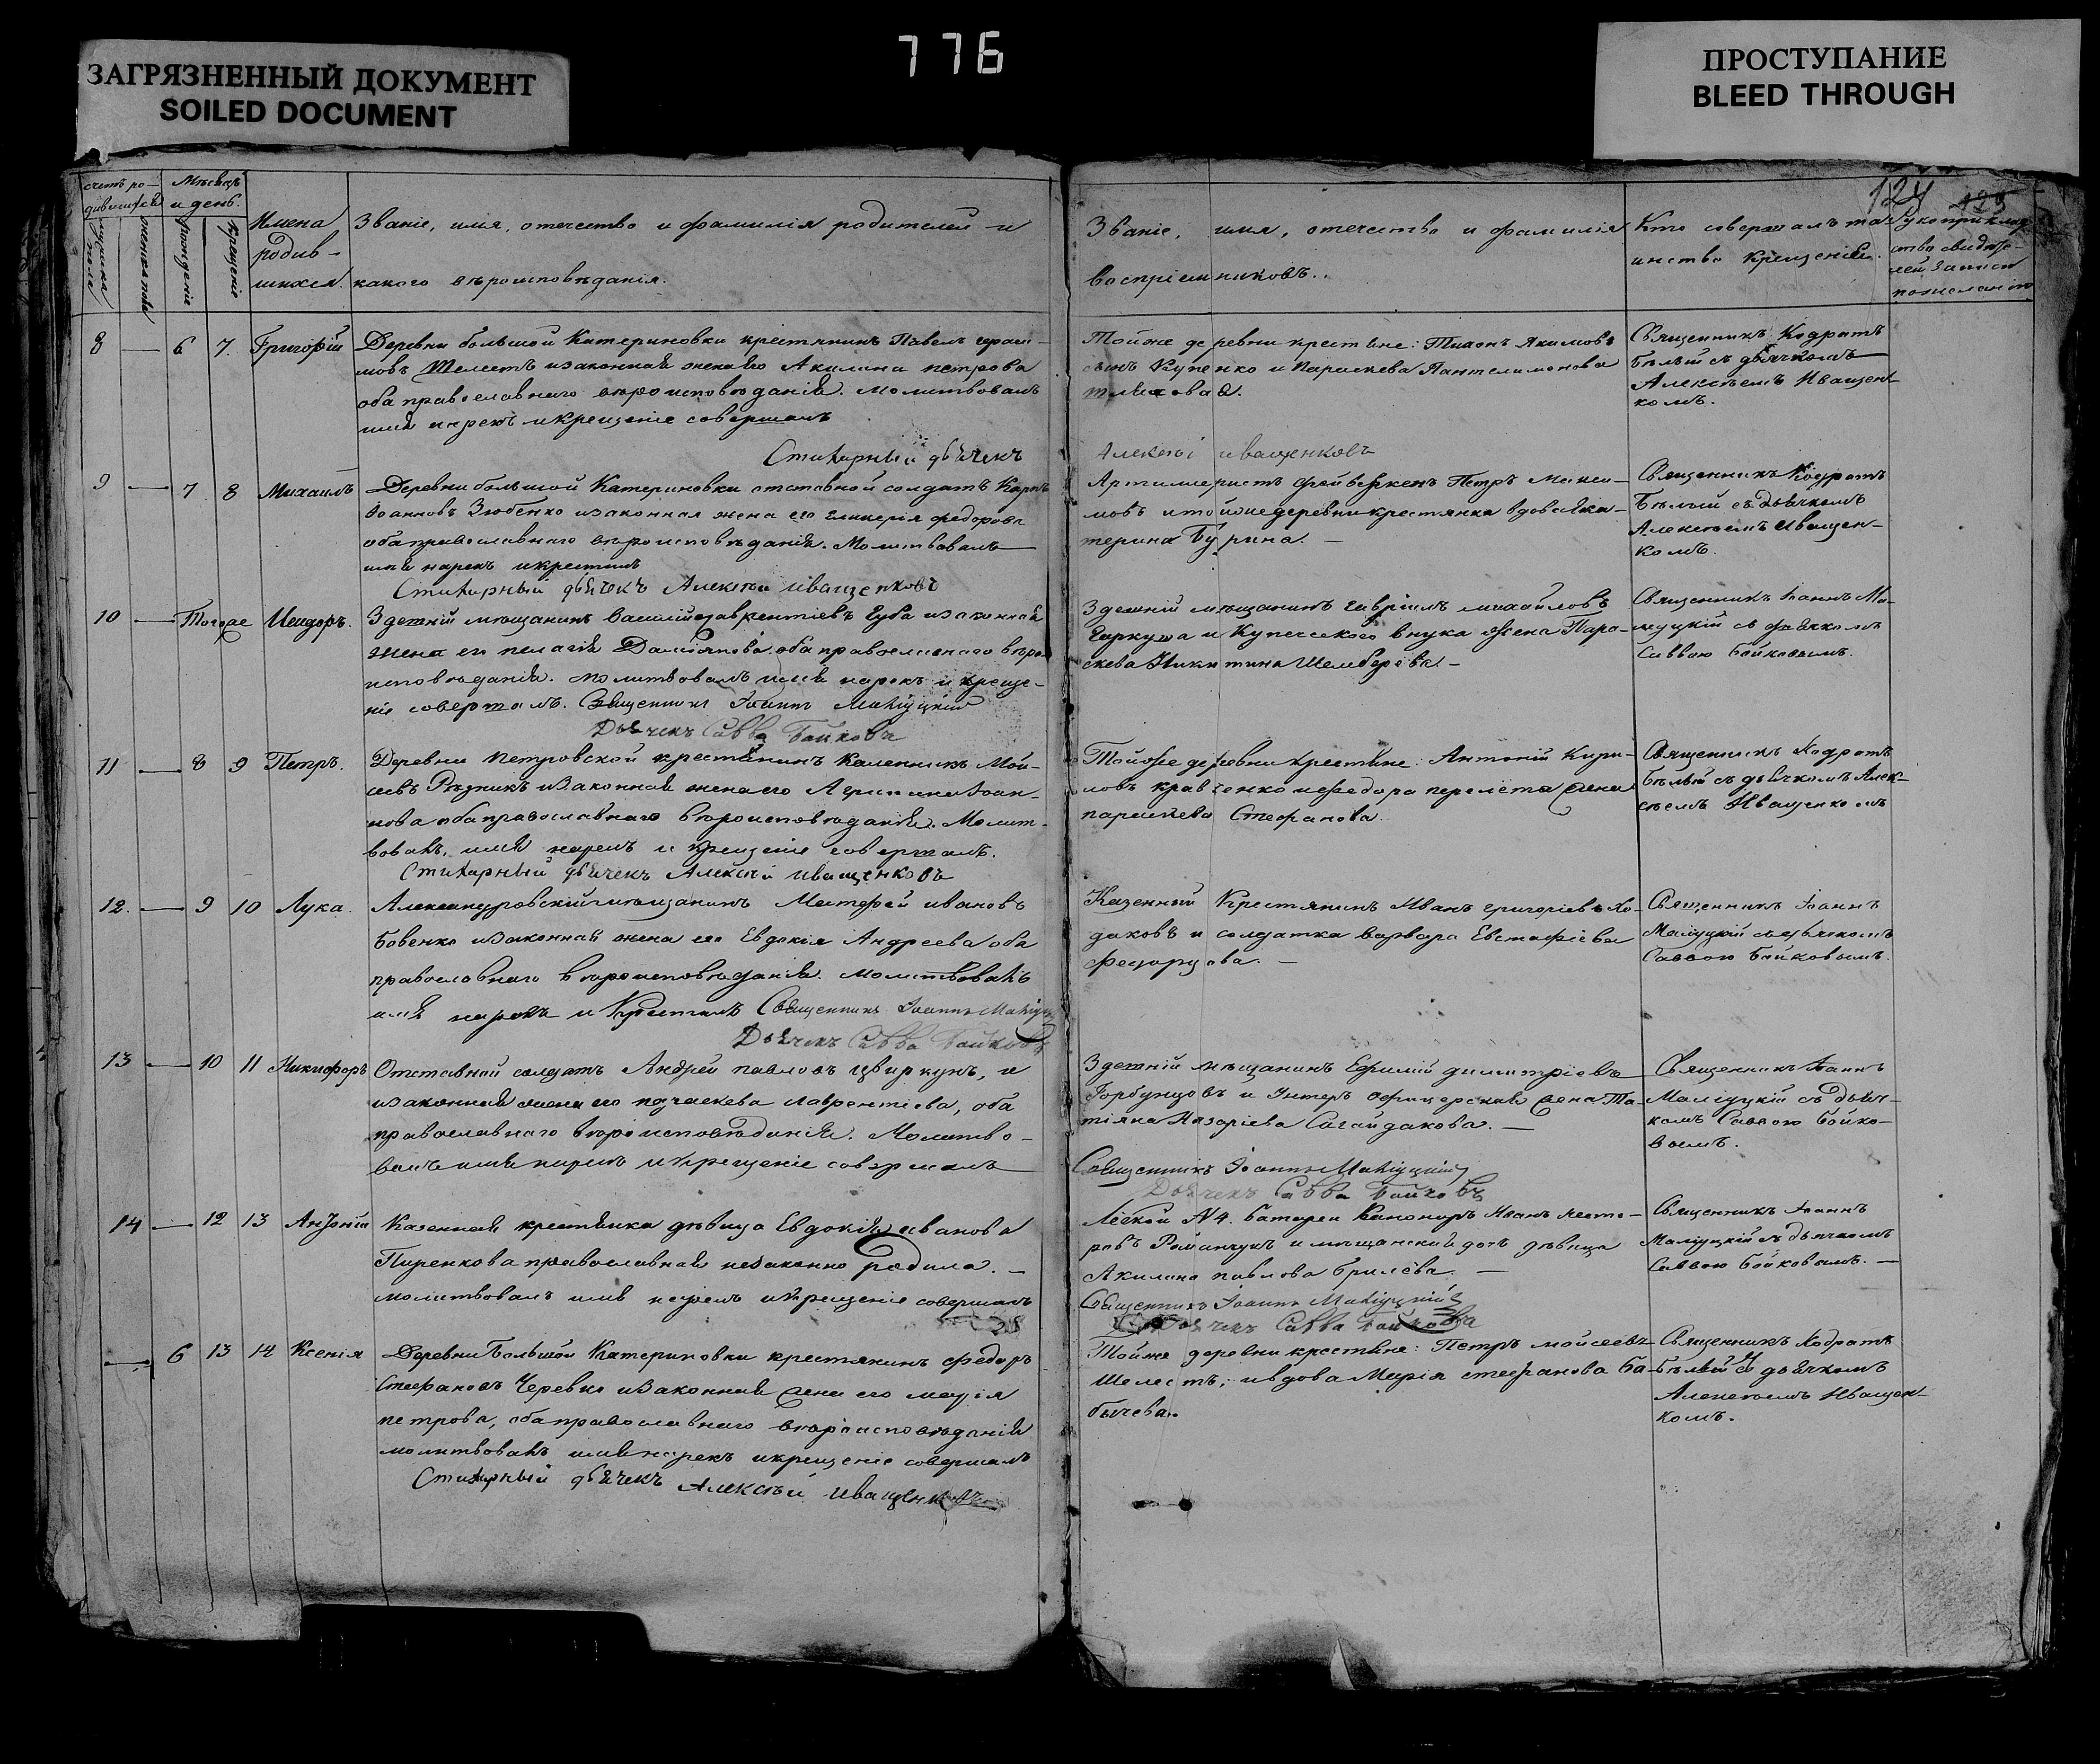 776
ЗАГРЯЗНЕННЫЙ ДОКУМЕНТ
SOILED DOCUMENT
ПРОСТУПАНИЕ
BLEED THROUGH
124
Мѣсяцъ
и день.
Имена
родив-
шихся.
Званіе, имя, отечество и фамилія родителей и
какого вѣроисповѣданія.
рожденіе
крещеніе
Званіе, имя, отечество и фамилія
воспріемниковъ.
Кто совершалъ та-
инство крещенія.
Рукоприклад
ство свидѣте-
лей записи
8 — 6 7. Григорій
Деревни большой Катериновки крестянинъ Павелъ гераси-
мовъ Шелестъ изаконная жена его Акилина петрова
оба православнаго вѣроисповѣданія. молитвовалъ
имя нарекъ икрещеніе совершалъ
Стихарный дьячекъ
Тойже деревни крестяне: Тихонъ Якимовъ
сынъ Купенко и Параскева Пантелимонова
Алексѣй иващенковъ
Священникъ Кодратъ
Бѣлый съ дьячкомъ
Алексѣемъ Иващен-
комъ.
9 — 7 8 Михаилъ
Деревни большой Катериновки отставной солдатъ Карпъ
Іоанновъ Зюбенко изаконная жена его гликерія федорова
оба православнаго вѣроисповѣданія. Молитвовалъ
имя нарекъ икрестилъ
Стихарный дьячекъ Алексѣй иващенковъ
Артилеристъ фейверкеръ Петръ Макси-
мовъ итойже деревни крестянка вдова Ека-
терина Бурина. —
Священникъ Кодратъ
Бѣлый съ дьячкомъ
Алексѣемъ Иващен-
комъ.
10 — Тогоже Исидоръ.
Здешній мѣщанинъ Василій лаврентіевъ Губа изаконная
жена его пелагія Даміянова оба православнаго вѣро
исповѣданія. молитвовалъ имя нарекъ и креще-
ніе совершалъ. Священникъ Іоаннъ Маліуцкій
Дьячекъ Савва Бойковъ
Здешній мѣщанинъ гавріилъ михайловъ
Гаркуша и Купеческого внука жена Пара-
скева Никитина Шемберева —
Священникъ Іоаннъ Ма-
луцкій съ дьячкомъ
Саввою Бойковымъ.
11 — 8 9 Петръ.
Деревни петровской крестянинъ Каленникъ Мой-
сеевъ Рѣзникъ изаконная жена его Агрипина Іоан-
нова оба православнаго вѣроисповѣданія. Молит-
вовалъ, имя нарекъ и крещеніе совершалъ.
Стихарный дьячекъ Алексѣй иващенковъ
Тойже деревни крестяне: Антоній Кири-
ловъ кравченко ифедора перелета жена
параскева Стефанова.
Священникъ Кодратъ
Бѣлый съ дьячкомъ Алек-
сѣемъ Иващенкомъ
12. — 9 10 Лука.
Александровскій мѣщанинъ Матфей ивановъ
Бовенко изаконная жена его Евдокія Андреева оба
православнаго вѣроисповѣданія. молитвовалъ
имя нарекъ и Крестилъ Священникъ Іоаннъ Маліуцкій
Дьячекъ Савва Бойковъ
Казенный Крестянинъ Иванъ григоріевъ Хо-
даковъ и солдатка варвара Евстафіева
Священникъ Іоаннъ
Маліуцкій съ дьячкомъ
Саввою Бойковымъ.
13 — 10 11 Никифоръ
Отставной солдатъ Андрей павловъ цвиркунъ, и
изаконная жена его параскева лаврентіева, оба
православнаго вѣроисповѣданія. Молитво-
валъ имя нарекъ икрещеніе совершалъ
Здешній мѣщанинъ Ефимій димитріевъ
Горбунцовъ и Унтеръ офицерская жена Та-
тіяна Назаріева Сагайдакова. —
Священникъ Іоаннъ Маліуцкій
Дьячекъ Савва Бойковъ
Священникъ Іоаннъ
Маліуцкій съ дьяч-
комъ Саввою Бойко-
вымъ.
14 — 12 13 Антоній
Казенная крестянка дѣвица Евдокія иванова
Пиренкова православная незаконно родила. —
молитвовалъ имя нарекъ икрещеніе совершалъ
Легкой №4. батареи Канониръ Иванъ несте-
ровъ Романчукъ и мѣщанская дочь дѣвица
Акилина павлова Брилёва —
Священникъ Іоаннъ Маліуцкій
Дьячекъ Савва Бойковъ
Священникъ Іоаннъ
Маліуцкій съ дьячкомъ
Саввою Бойковымъ. —
— 6 13 14 Ксенія
Деревни Большой Катериновки крестянинъ федоръ
Стефановъ Черевко изаконная жена его марія
петрова, оба православнаго вѣроисповѣданія
молитвовалъ имя нарекъ икрещеніе совершалъ
Стихарный дьячекъ Алексѣй иващенковъ
Тойже деревни крестяне: Петръ мойсеевъ
Шелестъ, ивдова Марія стефанова Ба-
бычева.
Священникъ Кодратъ
Бѣлый съ дьячкомъ
Алексѣемъ Иващен-
комъ.